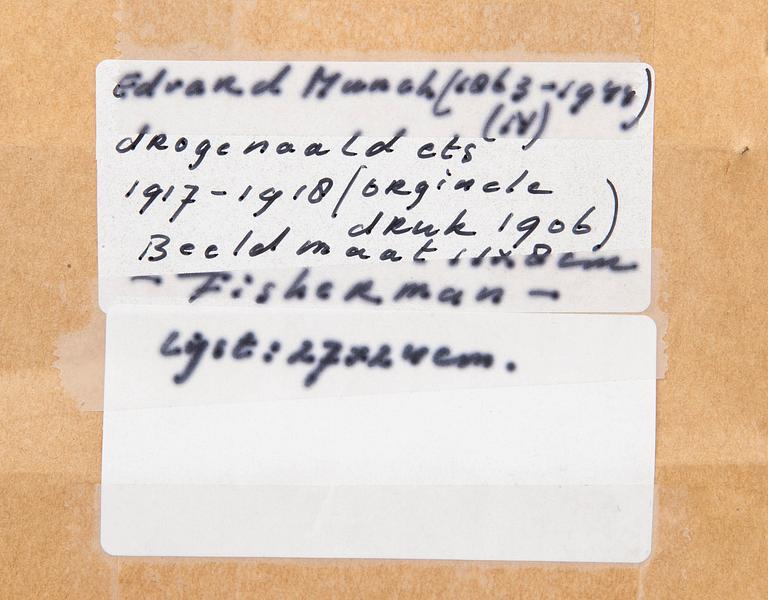 Edvard Munch (1863-1944)
(N)
drogenaald ets
1917-1918 (orginele
druk 1906)
Beeldmaat 11x8cm
- Fisherman -
Lijst: 27x24cm.